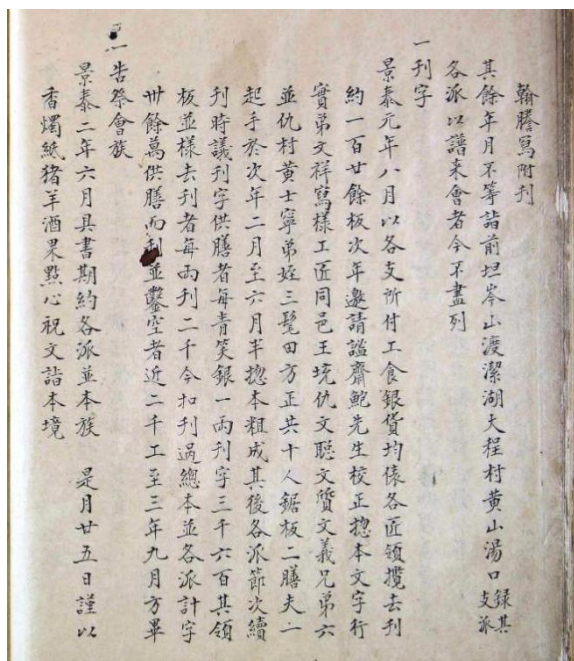 翰謄寫附刊
其餘年月不等詣前坦岑山渡潔湖大程村黃山湯口錄其支派
各派以譜来會者今不盡列
一刊字
景泰元年八月以各支所付工食銀貨均俵各匠領攬去刊
約一百廿餘板次年邀請謚齋鮑先生校正揔本文字行
實弟文祥寫樣工匠同邑王境仇文聪文質文義兄弟六
並仇村黄士寧弟姪三髦田方正共十人鋸板二膳夫一
起手於次年二月至六月半揔本粗成其後各派節次續
刊時議刊字供膳者每青笶銀一兩刊字三千六百其領
板並樣去刊者每兩刊二千今扣刊過總本並各派計字
卅餘萬供膳而刊並鑿空者近二千工至三年九月方畢
一告祭會族
景泰二年六月具書期約各派並本族 是月廿五日謹以
香燭紙猪羊酒果點心祝文詣本境